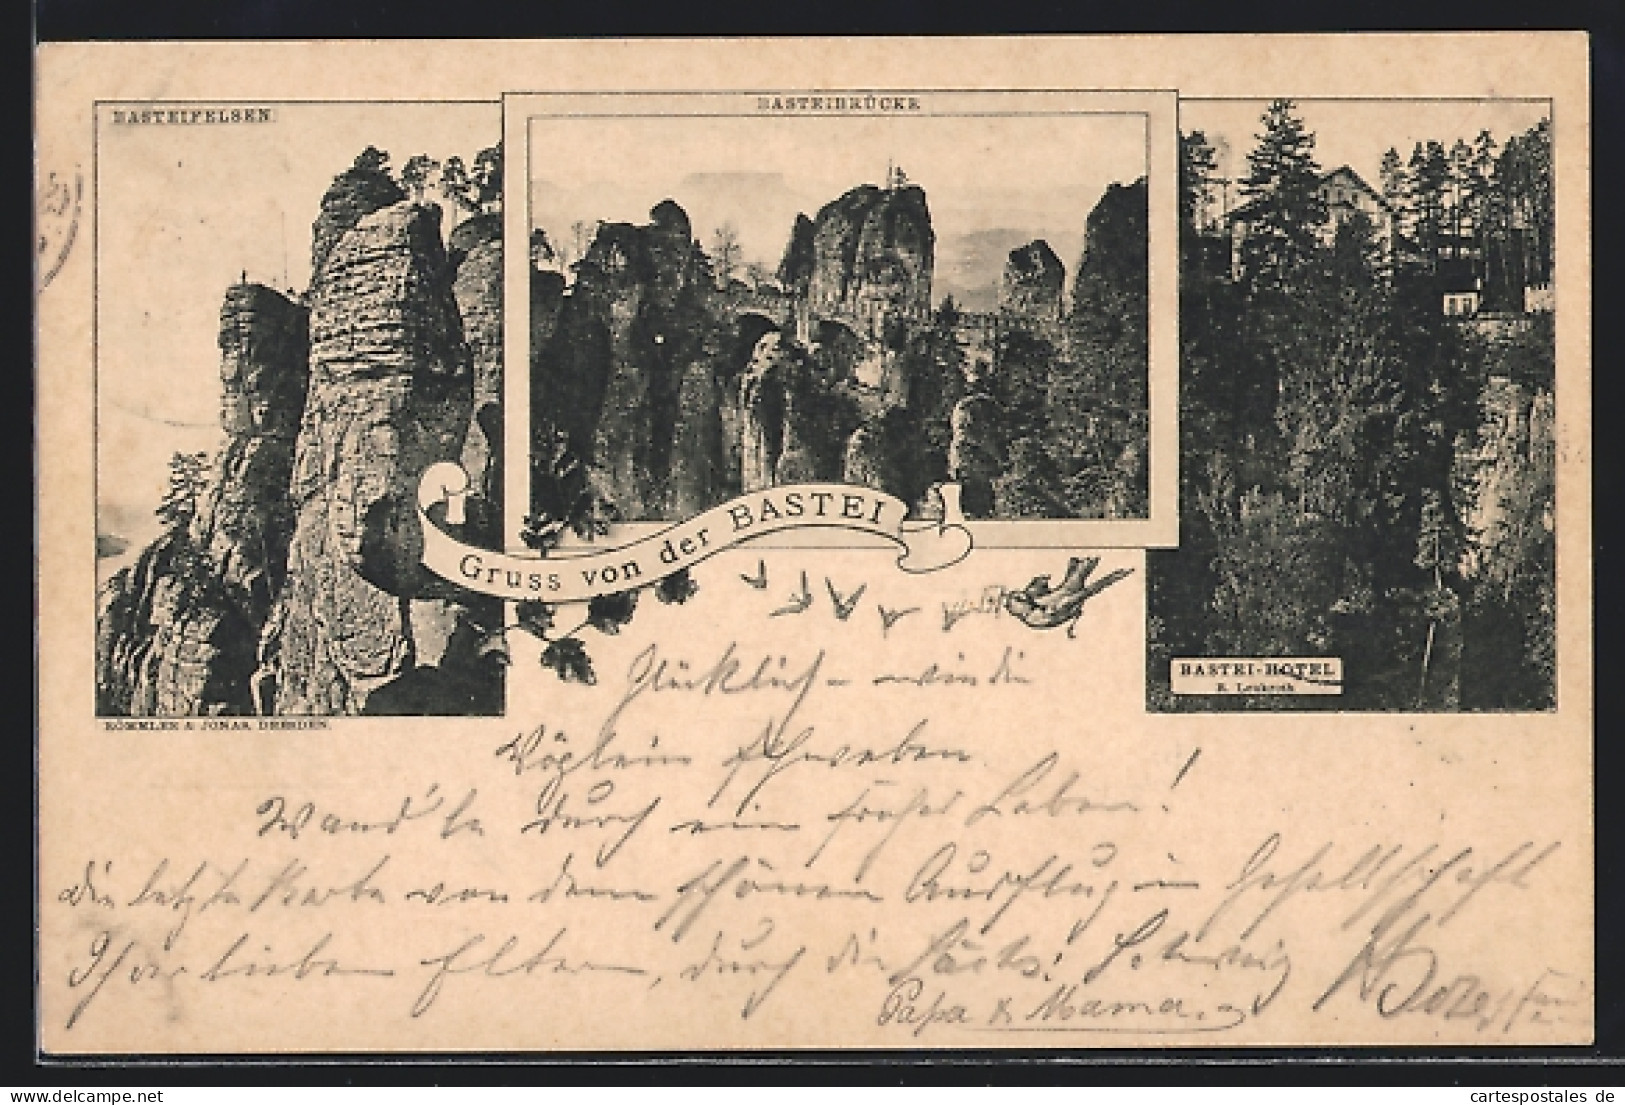 BASTEIFELSEN.
BASTEIBRÜCKE
Gruss von der BASTEI
BASTEI-HOTEL
RÖMMLER & JONAS, DRESDEN.
Glücklich – wie die
Vöglein schweben
Wand'le durch ein frohes Leben!
die letzte Karte von dem schönen Ausflug in Gesellschaft
Ihrer lieben Eltern, durch die Sächs:
Papa & Mama.
www.cartespostales.de
cartespostales de